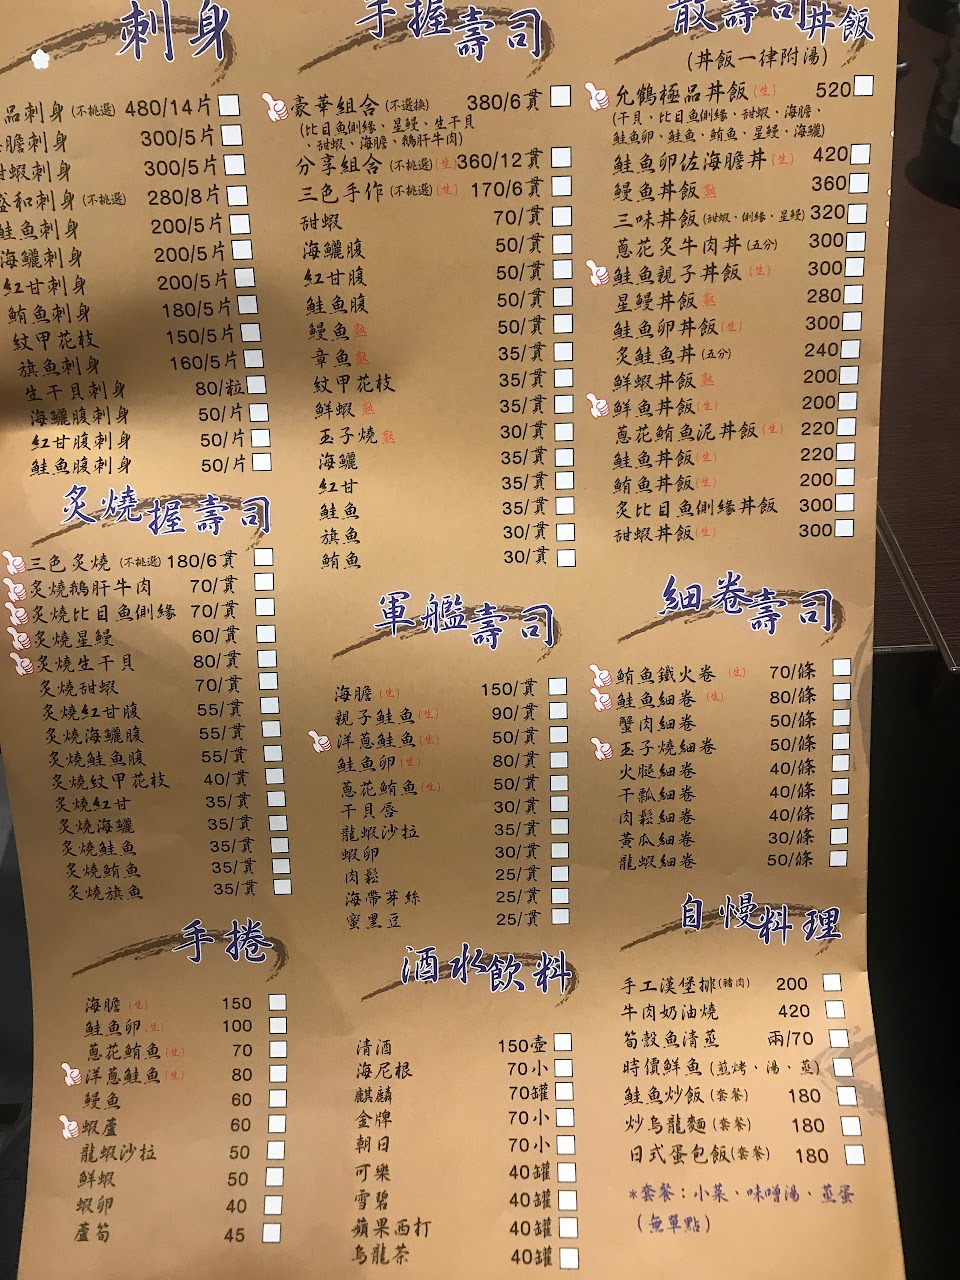 刺身
品刺身(不挑選) 480/14片
膽刺身 300/5片
甜蝦刺身 300/5片
盛和刺身(不挑選) 280/8片
鮭魚刺身 200/5片
海鱺刺身 200/5片
紅甘刺身 200/5片
鮪魚刺身 180/5片
紋甲花枝 150/5片
旗魚刺身 160/5片
生干貝刺身 80/粒
海鱺腹刺身 50/片
紅甘腹刺身 50/片
鮭魚腹刺身 50/片
炙燒握壽司
三色炙燒(不挑選) 180/6貫
炙燒鵝肝牛肉 70/貫
炙燒比目魚側緣 70/貫
炙燒星鰻 60/貫
炙燒生干貝 80/貫
炙燒甜蝦 70/貫
炙燒紅甘腹 55/貫
炙燒海鱺腹 55/貫
炙燒鮭魚腹 55/貫
炙燒紋甲花枝 40/貫
炙燒紅甘 35/貫
炙燒海鱺 35/貫
炙燒鮭魚 35/貫
炙燒鮪魚 35/貫
炙燒旗魚 35/貫
手捲
海膽(生) 150
鮭魚卵(生) 100
蔥花鮪魚(生) 70
洋蔥鮭魚(生) 80
鰻魚 60
蝦蘆 60
龍蝦沙拉 50
鮮蝦 50
蝦卵 40
蘆筍 45
手握壽司
豪華組合(不選換) 380/6貫
(比目魚側緣、星鰻、生干貝
、甜蝦、海膽、鵝肝牛肉)
分享組合(不挑選)(生) 360/12貫
三色手作(不挑選)(生) 170/6貫
甜蝦 70/貫
海鱺腹 50/貫
紅甘腹 50/貫
鮭魚腹 50/貫
鰻魚 熟 50/貫
章魚 熟 35/貫
紋甲花枝 35/貫
鮮蝦 熟 35/貫
玉子燒 熟 30/貫
海鱺 35/貫
紅甘 35/貫
鮭魚 35/貫
旗魚 30/貫
鮪魚 30/貫
軍艦壽司
海膽(生) 150/貫
親子鮭魚(生) 90/貫
洋蔥鮭魚(生) 50/貫
鮭魚卵(生) 80/貫
蔥花鮪魚(生) 50/貫
干貝唇 30/貫
龍蝦沙拉 35/貫
蝦卵 30/貫
肉鬆 25/貫
海帶芽絲 25/貫
蜜黑豆 25/貫
酒水飲料
清酒 150壺
海尼根 70小
麒麟 70罐
金牌 70小
朝日 70小
可樂 40罐
雪碧 40罐
蘋果西打 40罐
烏龍茶 40罐
散壽司丼飯
(丼飯一律附湯)
允鶴極品丼飯(生) 520
(干貝、比目魚側緣、甜蝦、海膽、
鮭魚卵、鮭魚、鮪魚、星鰻、海鱺)
鮭魚卵佐海膽丼(生) 420
鰻魚丼飯 熟 360
三味丼飯(甜蝦、側緣、星鰻) 320
蔥花炙牛肉丼(五分) 300
鮭魚親子丼飯(生) 300
星鰻丼飯 熟 280
鮭魚卵丼飯(生) 300
炙鮭魚丼(五分) 240
鮮蝦丼飯 熟 200
鮮魚丼飯(生) 200
蔥花鮪魚泥丼飯(生) 220
鮭魚丼飯(生) 220
鮪魚丼飯(生) 200
炙比目魚側緣丼飯 300
甜蝦丼飯(生) 300
細卷壽司
鮪魚鐵火卷(生) 70/條
鮭魚細卷(生) 80/條
蟹肉細卷 50/條
玉子燒細卷 50/條
火腿細卷 40/條
干瓢細卷 40/條
肉鬆細卷 40/條
黃瓜細卷 30/條
龍蝦細卷 50/條
自慢料理
手工漢堡排(豬肉) 200
牛肉奶油燒 420
筍殼魚清蒸 兩/70
時價鮮魚(煎烤、湯、蒸)
鮭魚炒飯(套餐) 180
炒烏龍麵(套餐) 180
日式蛋包飯(套餐) 180
*套餐：小菜、味噌湯、蒸蛋
(無單點)